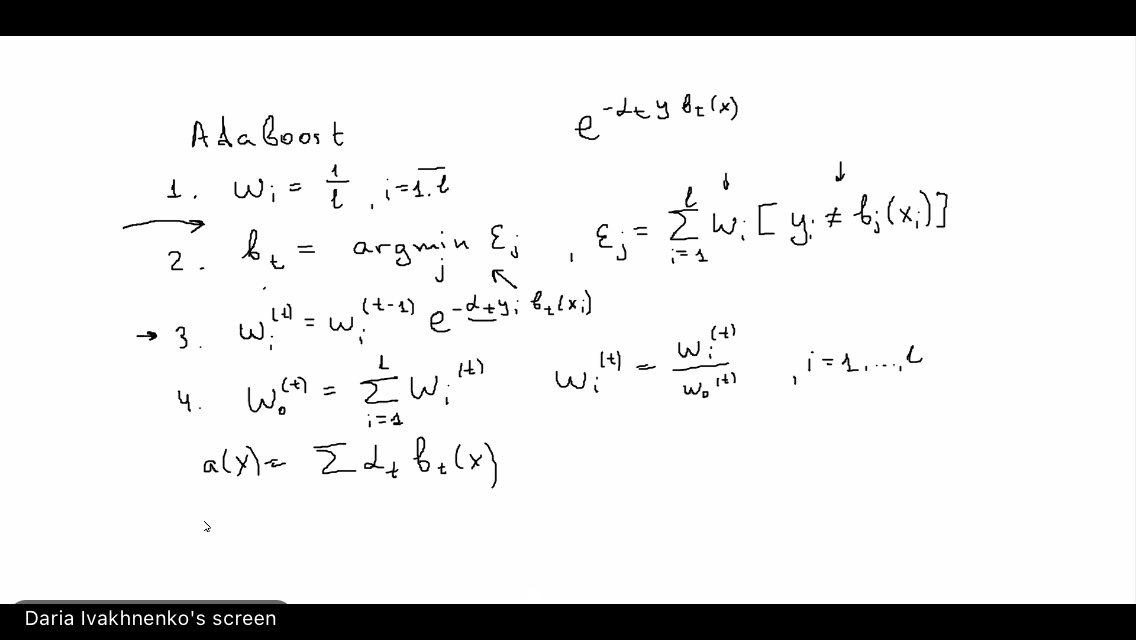 Adaboost
e^{-α_t y b_t(x)}
1. w_i = 1/l , i=1.l
2. b_t = argmin_j ε_j , ε_j = Σ_{i=1}^{l} w_i [ y_i ≠ b_j(x_i) ]
3. w_i^{(t)} = w_i^{(t-1)} e^{-α_t y_i b_t(x_i)}
4. w_0^{(t)} = Σ_{i=1}^{l} w_i^{(t)} w_i^{(t)} = w_i^{(t)} / w_0^{(t)} , i=1,...,l
a(x) = Σ α_t b_t(x)
Daria Ivakhnenko's screen